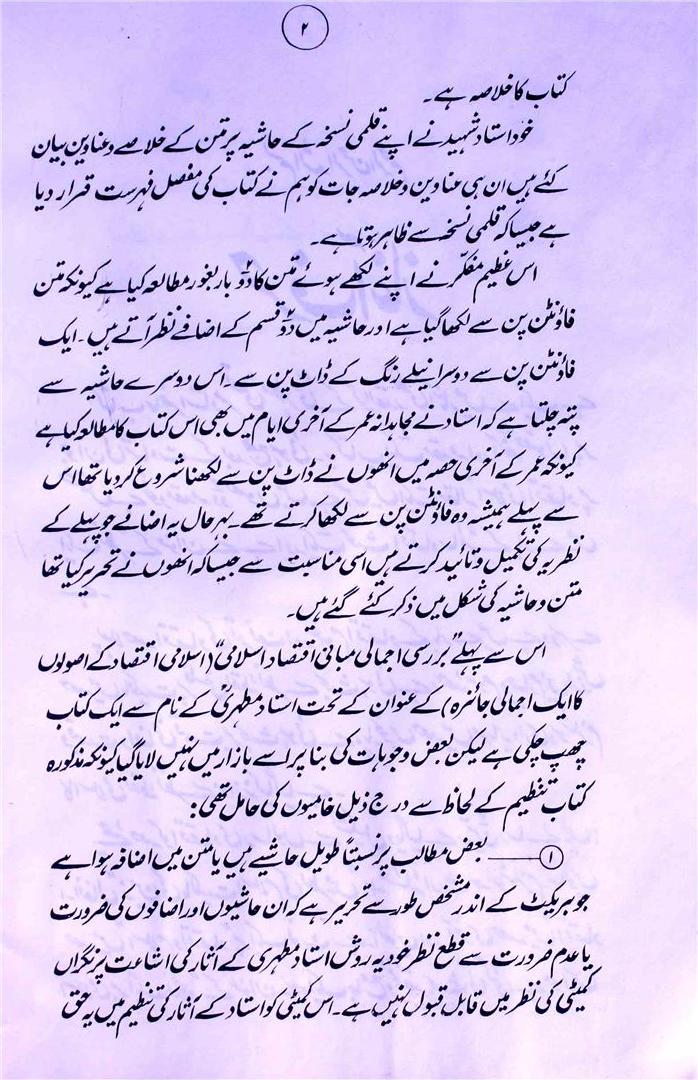 ۲
کتاب کا خلاصہ ہے۔
خود استاد شہید نے اپنے قلمی نسخہ کے حاشیہ پر متن کے خلاصے و عناوین بیان
کئے ہیں ان ہی عناوین و خلاصہ جات کو ہم نے کتاب کی مفصل فہرست قرار دیا
ہے جیسا کہ قلمی نسخہ سے ظاہر ہوتا ہے۔
اس عظیم مفکّر نے اپنے لکھے ہوئے متن کا دو۲ بار بغور مطالعہ کیا ہے کیونکہ متن
فاؤنٹن پن سے لکھا گیا ہے اور حاشیہ میں دو۲ قسم کے اضافے نظر آتے ہیں۔ ایک
فاؤنٹن پن سے دوسرا نیلے رنگ کے ڈاٹ پن سے۔ اس دوسرے حاشیہ سے
پتہ چلتا ہے کہ استاد نے مجاہدانہ عمر کے آخری ایام میں بھی اس کتاب کا مطالعہ کیا ہے
کیونکہ عمر کے آخری حصہ میں انھوں نے ڈاٹ پن سے لکھنا شروع کر دیا تھا اس
سے پہلے ہمیشہ وہ فاؤنٹن پن سے لکھا کرتے تھے۔ بہر حال یہ اضافے جو پہلے کے
نظریہ کی تکمیل و تائید کرتے ہیں اسی مناسبت سے جیسا کہ انھوں نے تحریر کیا تھا
متن و حاشیہ کی شکل میں ذکر کئے گئے ہیں۔
اس سے پہلے "بررسی اجمالی مبانی اقتصاد اسلامی" (اسلامی اقتصاد کے اصولوں
کا ایک اجمالی جائزہ) کے عنوان کے تحت استاد مطہریؒ کے نام سے ایک کتاب
چھپ چکی ہے لیکن بعض وجوہات کی بنا پر اسے بازار میں نہیں لایا گیا کیونکہ مذکورہ
کتاب تنظیم کے لحاظ سے درج ذیل خامیوں کی حامل تھی:
۱ ــــــ بعض مطالب پر نسبتاً طویل حاشیے ہیں یا متن میں اضافہ ہوا ہے
جو بریکٹ کے اندر مشخص طور سے تحریر ہے کہ ان حاشیوں اور اضافوں کی ضرورت
یا عدم ضرورت سے قطع نظر خود یہ روش استاد مطہری کے آثار کی اشاعت پر نگراں
کمیٹی کی نظر میں قابل قبول نہیں ہے۔ اس کمیٹی کو استاد کے آثار کی تنظیم میں یہ حق